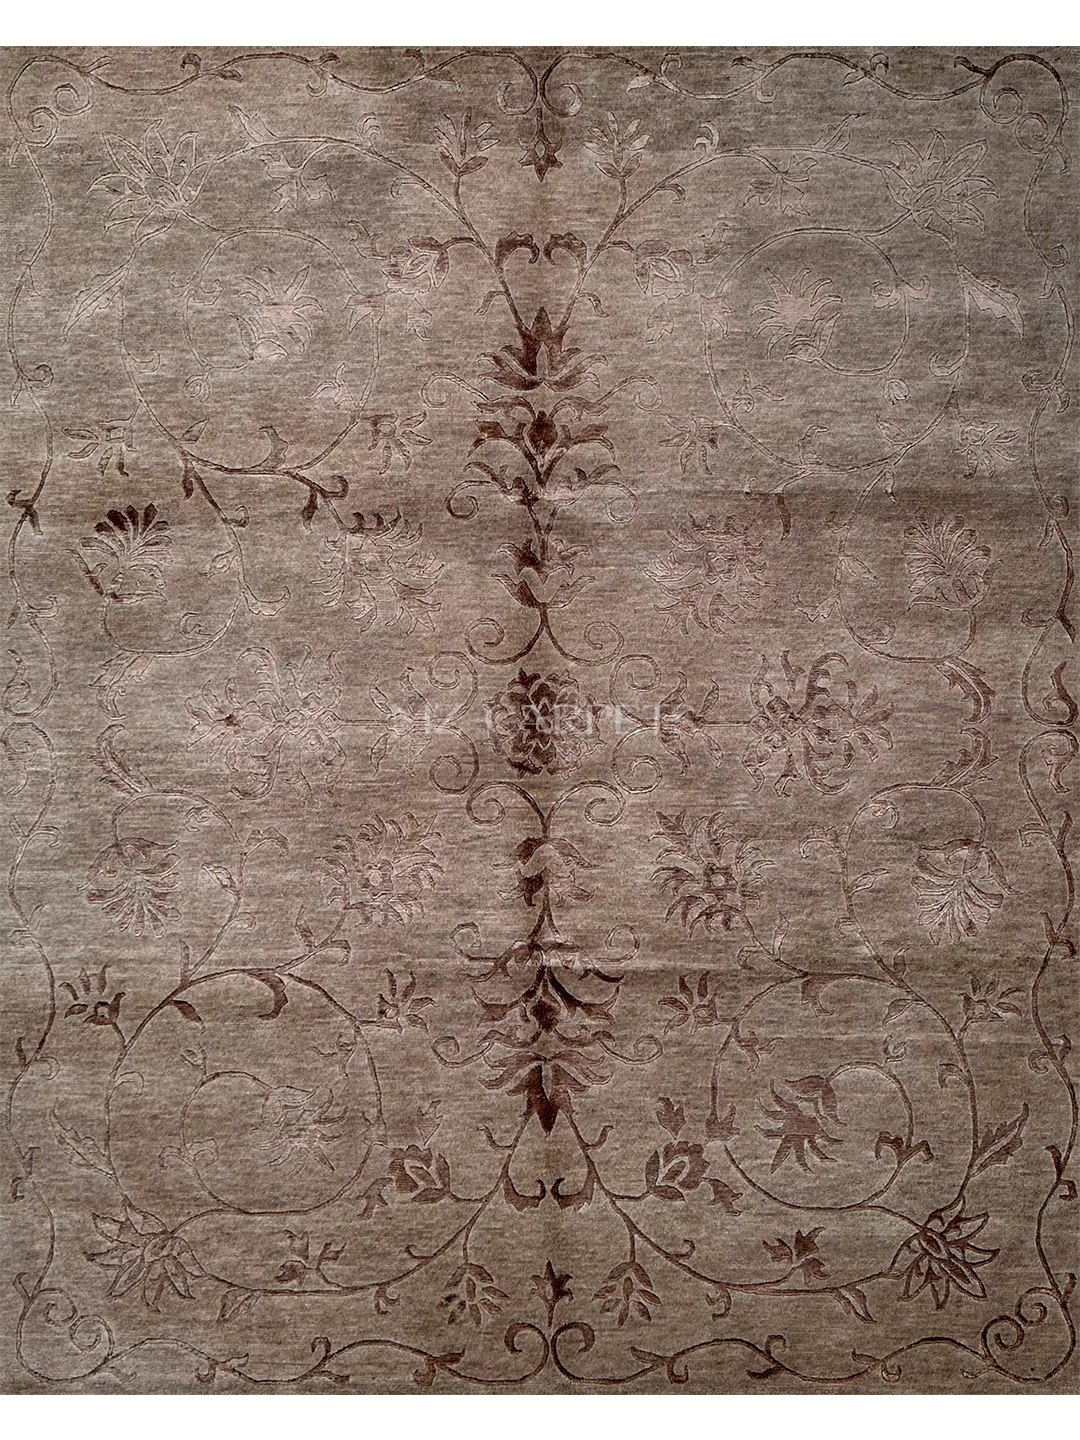 NZ CARPET